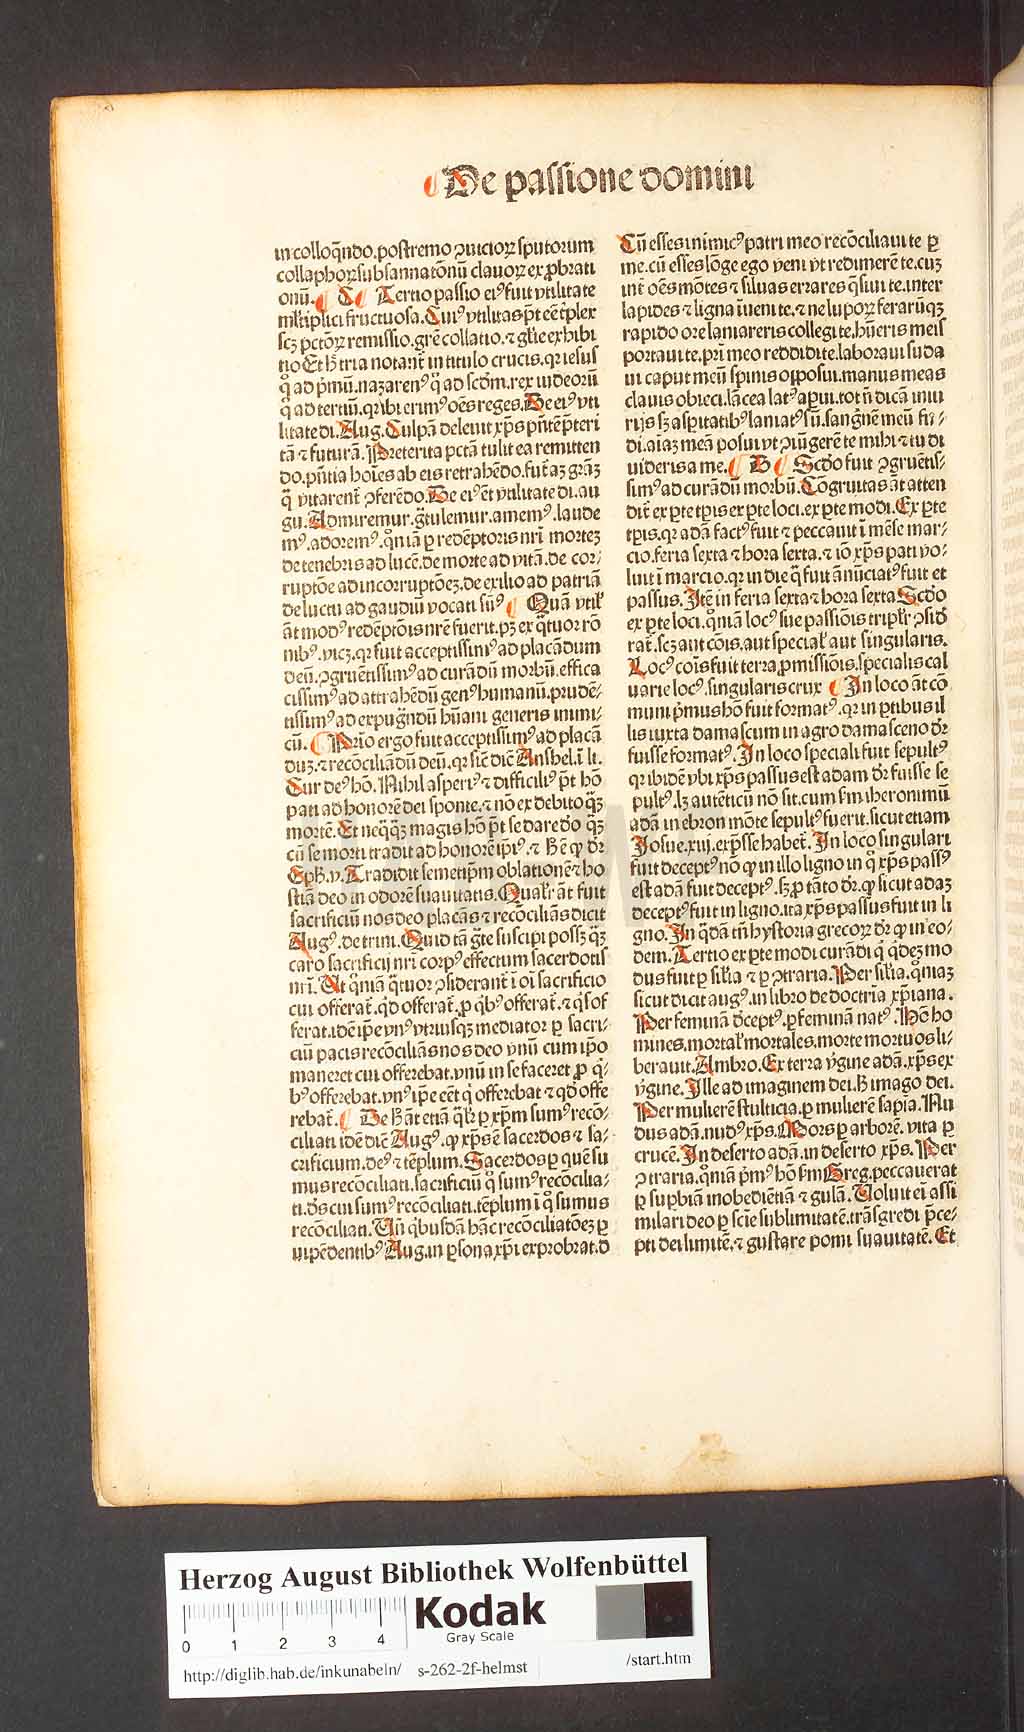 De passione domini
in colloq̄ndo.postremo ꝯuicioꝝ sputorum
collaphoꝝ subsannatōnū clauoꝝ exꝓbrati
onū. C Tertio passio eiꝰ fuit vtilitate
ml̄tiplici fructuosa.Cuiꝰ vtilitas pt̄ ee͂ tplex
scꝫ pctōꝝ remissio.grē collatio.⁊ gl̄ie exhibi
tio Et hͦ tria notant̄ in titulo crucis.qꝛ iesus
qͦ ad pͥmū.nazarenꝰ qͦ ad scd̄m.rex iudeorū
qͦ ad tertiū.qꝛ ibi erimꝰ oēs reges.De eiꝰ vti
litate di.Aug.Culpā deleuit xp̄s pn̄tē p̄teri
tā ⁊ futurā.Preterita pctā tulit ea remitten
do.pn̄tia hoīes ab eis retrahēdo.fut̄a aꝫ grāꝫ
q̄ vitarent̄ ꝯferēdo.De eiꝰ et̄ vtilitate di.au
gu.Admiremur.gͣtulemur.amemꝰ.laude
mꝰ.adoremꝰ.qm̄iā ꝑ redēptoris nr̄i morteꝫ
de tenebris ad lucē.de morte ad vitā.de cor⸗
ruptōe ad incorruptōeꝫ.de exilio ad patriā
de luctu ad gaudiū vocati sūꝰ Quā vtil̄
āt modꝰ redēptōis nr̄e fuerit.pꝫ ex qͣtuor rō
nibꝰ.vicꝫ.qꝛ fuit acceptissimꝰ ad placādum
deū.ꝯgruētissimꝰ ad curādū morbū.effica
cissimꝰ ad attrahēdū genꝰ humanū.prudē⸗
tissimꝰ ad expugͣndū hūani generis inimi⸗
cū. Prīo ergo fuit acceptissimꝰ ad placā
duꝫ.⁊ recōciliādū deū.qꝛ sic̄ dic̄ Anshel.ī li.
Cur deꝰ hō.Nihil asperiꝰ ⁊ difficiliꝰ pt̄ hō
pati ad honorē dei sponte.⁊ nō ex debito qͣꝫ
mortē.Et neqͣqͣꝫ magis hō pt̄ se dare deo qͣꝫ
cū se morti tradit ad honorē ip̄iꝰ.⁊ hͦ ē ꝙ dr̄
Eph.v.Tradidit semetip̄m oblationē ⁊ ho
stiā deo in odorē suauitatis.Qualr̄ āt fuit
sacrificiū nos deo placās ⁊ recōciliās dicit
Augꝰ.de trini.Quid tā gͣte suscipi possꝫ qͣꝫ
caro sacrificij nr̄i corpꝰ effectum sacerdotis
nr̄i.Vt qm̄iā qͣtuor ꝯsiderant̄ ī oī sacrificio
cui offerat̄.qd̄ offerat̄.ꝓ qͥbꝰ offerat̄.⁊ qͥs of
ferat.idē ip̄e vnꝰ vtriusqꝫ mediator ꝑ sacri⸗
ciū pacis recōciliās nos deo vnū cum ip̄o
maneret cui offerebat.vnū in se faceret ꝓ qͥ⸗
bꝰ offerebat.vnꝰ ip̄e eēt qͥ offerebat ⁊ qd̄ offe
rebat̄. De hͦ āt etiā qͣlr̄ ꝑ xp̄m sumꝰ recō⸗
ciliati idē dic̄ Augꝰ.ꝙ xp̄s ē sacerdos ⁊ sa⸗
crificium.deꝰ ⁊ tēplum.Sacerdos ꝑ quē su
mus recōciliati.sacrificiū qͦ sumꝰ recōcilia⸗
ti.dꝰs cui sumꝰ recōciliati.tēplum ī qͦ sumus
recōciliati.Vn̄ qͥbusdā hāc recōciliatōeꝫ ꝑ
uipēdentibꝰ Aug.in ꝑsona xp̄i exprobrat.d
Cū esses inimicꝰ patri meo recōciliaui te ꝑ
me.cū esses lōge ego veni vt redimerē te.cuꝫ
int̄ oēs mōtes ⁊ siluas errares qͣsiui te.inter
lapides ⁊ ligna īueni te.⁊ ne lupoꝝ ferarūqꝫ
rapido ore laniareris collegi te.hūeris meis
portaui te.pr̄i meo reddidi te.laboraui suda
ui caput meū spinis opposui.manus meas
clauis obieci.lācea latꝰ aꝑui.tot nō dicā iniu
rijs sꝫ asperitatibꝰ laniatꝰ sū.sangͥnē meū fu⸗
di.aīaꝫ meā posui vt ꝯiūgerē te mihi ⁊ tu di
uideris a me. B Scd̄o fuit ꝯgruētis⸗
simꝰ ad curādū morbū.Cōgruitas āt atten
dit̄ ex ꝑte tp̄is ex ꝑte loci.ex ꝑte modi.Ex ꝑte
tp̄is.qꝛ adā factꝰ fuit ⁊ peccauit ī mēse mar⸗
cio.feria sexta ⁊ hora sexta.⁊ iō xp̄s pati vo⸗
luit ī marcio.qꝛ in die qͣ fuit ānūciatꝰ fuit et
passus.Itē in feria sexta ⁊ hora sexta Scd̄o
ex ꝑte loci.qm̄iā locꝰ sue passiōis triplr̄ ꝯsid̄
rat̄.scꝫ aut cōis.aut special̄ aut singularis.
Locꝰ cōis fuit terra ꝓmissiōis.specialis cal
uarie locꝰ.singularis crux In loco āt cō
muni pͥmus hō fuit formatꝰ.qꝛ in ꝑtibus il
lis iuxta damascum in agro damasceno dr̄
fuisse formatꝰ.In loco speciali fuit sepultꝰ
qꝛ ibidē vbi xp̄s passus est adam dr̄ fuisse se
pultꝰ.lꝫ autēticū nō sit.cum ẜm iheronimū
adā in ebron mōte sepultꝰ fuerit.sicut etiam
Josue.xiiij.exp̄sse habet̄.In loco singulari
fuit deceptꝰ nō ꝙ in illo ligno in qͦ xp̄s passꝰ
est adā fuit deceptꝰ.sꝫ ꝓ tāto dr̄.ꝙ sicut adaꝫ
deceptꝰ fuit in ligno.ita xp̄s passus fuit in li
gno.In qͣdā tn̄ hystoria grecoꝝ dr̄ ꝙ in eo⸗
dem.Tertio ex ꝑte modi curādi qͥ qͥdeꝫ mo
dus fuit ꝑ sil̄ia ⁊ ꝑ ꝯtraria.Per sil̄ia.qm̄iaꝫ
sicut dicit augꝰ.in libro de doctrīa xp̄iana.
Per feminā dceptꝰ.ꝑ feminā natꝰ.Hō ho
mines.mortal̄ mortales.morte mortuos li⸗
berauit.Ambro.Ex terra v̄gine adā.xp̄s ex
v̄gine.Ille ad imaginem dei.hͦ imago dei.
Per mulierē stulticia.ꝑ mulierē sapīa.Nu
dus adā.nudꝰ xp̄s.Mors ꝑ arborē.vita ꝑ
crucē.In deserto adā.in deserto xp̄s.Per
ꝯtraria.qm̄iā pͥmꝰ hō ẜm Greg.peccauerat
ꝑ suꝑbiā inobediētiā ⁊ gulā.Voluit ei͂ assi
milari deo ꝑ scīe sublimitatē.trāsgredi p̄ce⸗
pti dei limitē.⁊ gustare pomi suauitatē.Et
Herzog August Bibliothek Wolfenbüttel
0 1 2 3 4
Kodak
Gray Scale
http://diglib.hab.de/inkunabeln/ s-262-2f-helmst /start.htm